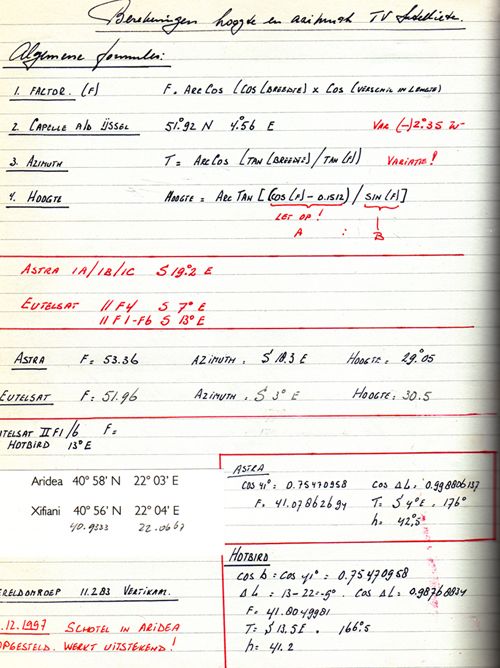 Berekeningen hoogte en azimuth TV Satelliete.
Algemene formules:
1. FACTOR. (F) F = ARC COS (COS (BREEDTE) x COS (VERSCHIL IN LENGTE)
2. CAPELLE A/D IJSSEL 51.°92 N 4.°56 E VAR (-) 2.°35 W
3. AZIMUTH T = ARC COS (TAN (BREEDTE) / TAN (F)) VARIATIE!
4. HOOGTE HOOGTE = ARC TAN [(COS (F) - 0.1512) / SIN (F)]
LET OP!
A : B
ASTRA 1A/1B/1C S 19.°2 E
EUTELSAT II F4 S 7° E
II F1-F6 S 13° E
ASTRA F= 53.36 AZIMUTH. S 18.3 E HOOGTE= 29.°05
EUTELSAT F= 51.96 AZIMUTH. S 3° E HOOGTE: 30.5
TELSAT II F1/6 F=
HOTBIRD 13° E
Aridea 40° 58' N 22° 03' E
Xifiani 40° 56' N 22° 04' E
40.9333 22.0667
ASTRA
COS 41° = 0.75470958 COS ΔL = 0.998806137
F= 41.07862694 T= S 4° E. 176°
h= 42.°5
HOTBIRD
COS b = COS 41° = 0.75470958
ΔL = 13-22=-9° COS ΔL = 0.98768834
F= 41.8049981
T= S 13.5 E. 166.°5
h= 41.2
ERELDOMROEP 11.283 VERTIKAAL.
.12.1997 SCHOTEL IN ARIDEA
OPGESTELD. WERKT UITSTEKEND!